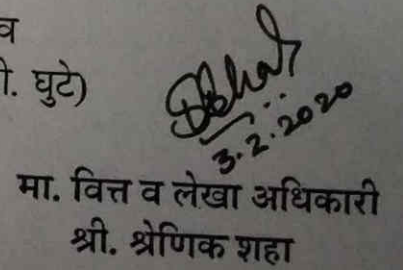 व
ी. घुटे)
3.2.2020
मा. वित्त व लेखा अधिकारी
श्री. श्रेणिक शहा